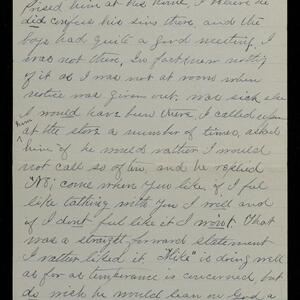 prised him at his home, I believe he
did confess his sins there and the
boys had quite a good meeting. I
was not there, Do fact knew nothing
of it as I was not at room when
notice was given out. was sick else
I would have been there, I called upon
him
at the store a number of times, asked
him if he would rather I would
not call so often, and he replied
"No; come when you like, if I feel
like talking with you I will and
if I don't feel like it I won't." That
was a straight forward statement
I rather liked it. "Mike" is doing well
as far as temperance is concerned, but
do wish he would lean on God a